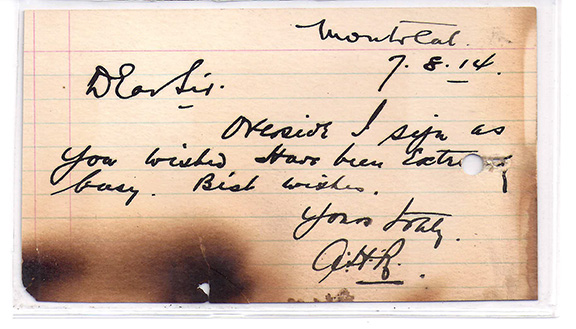 Montreal.
7. 8. 14.
Dear Sir.
Overside I sign as
you wished Have been Extre y
busy. Best wishes.
Yours truly.
A.H.R.